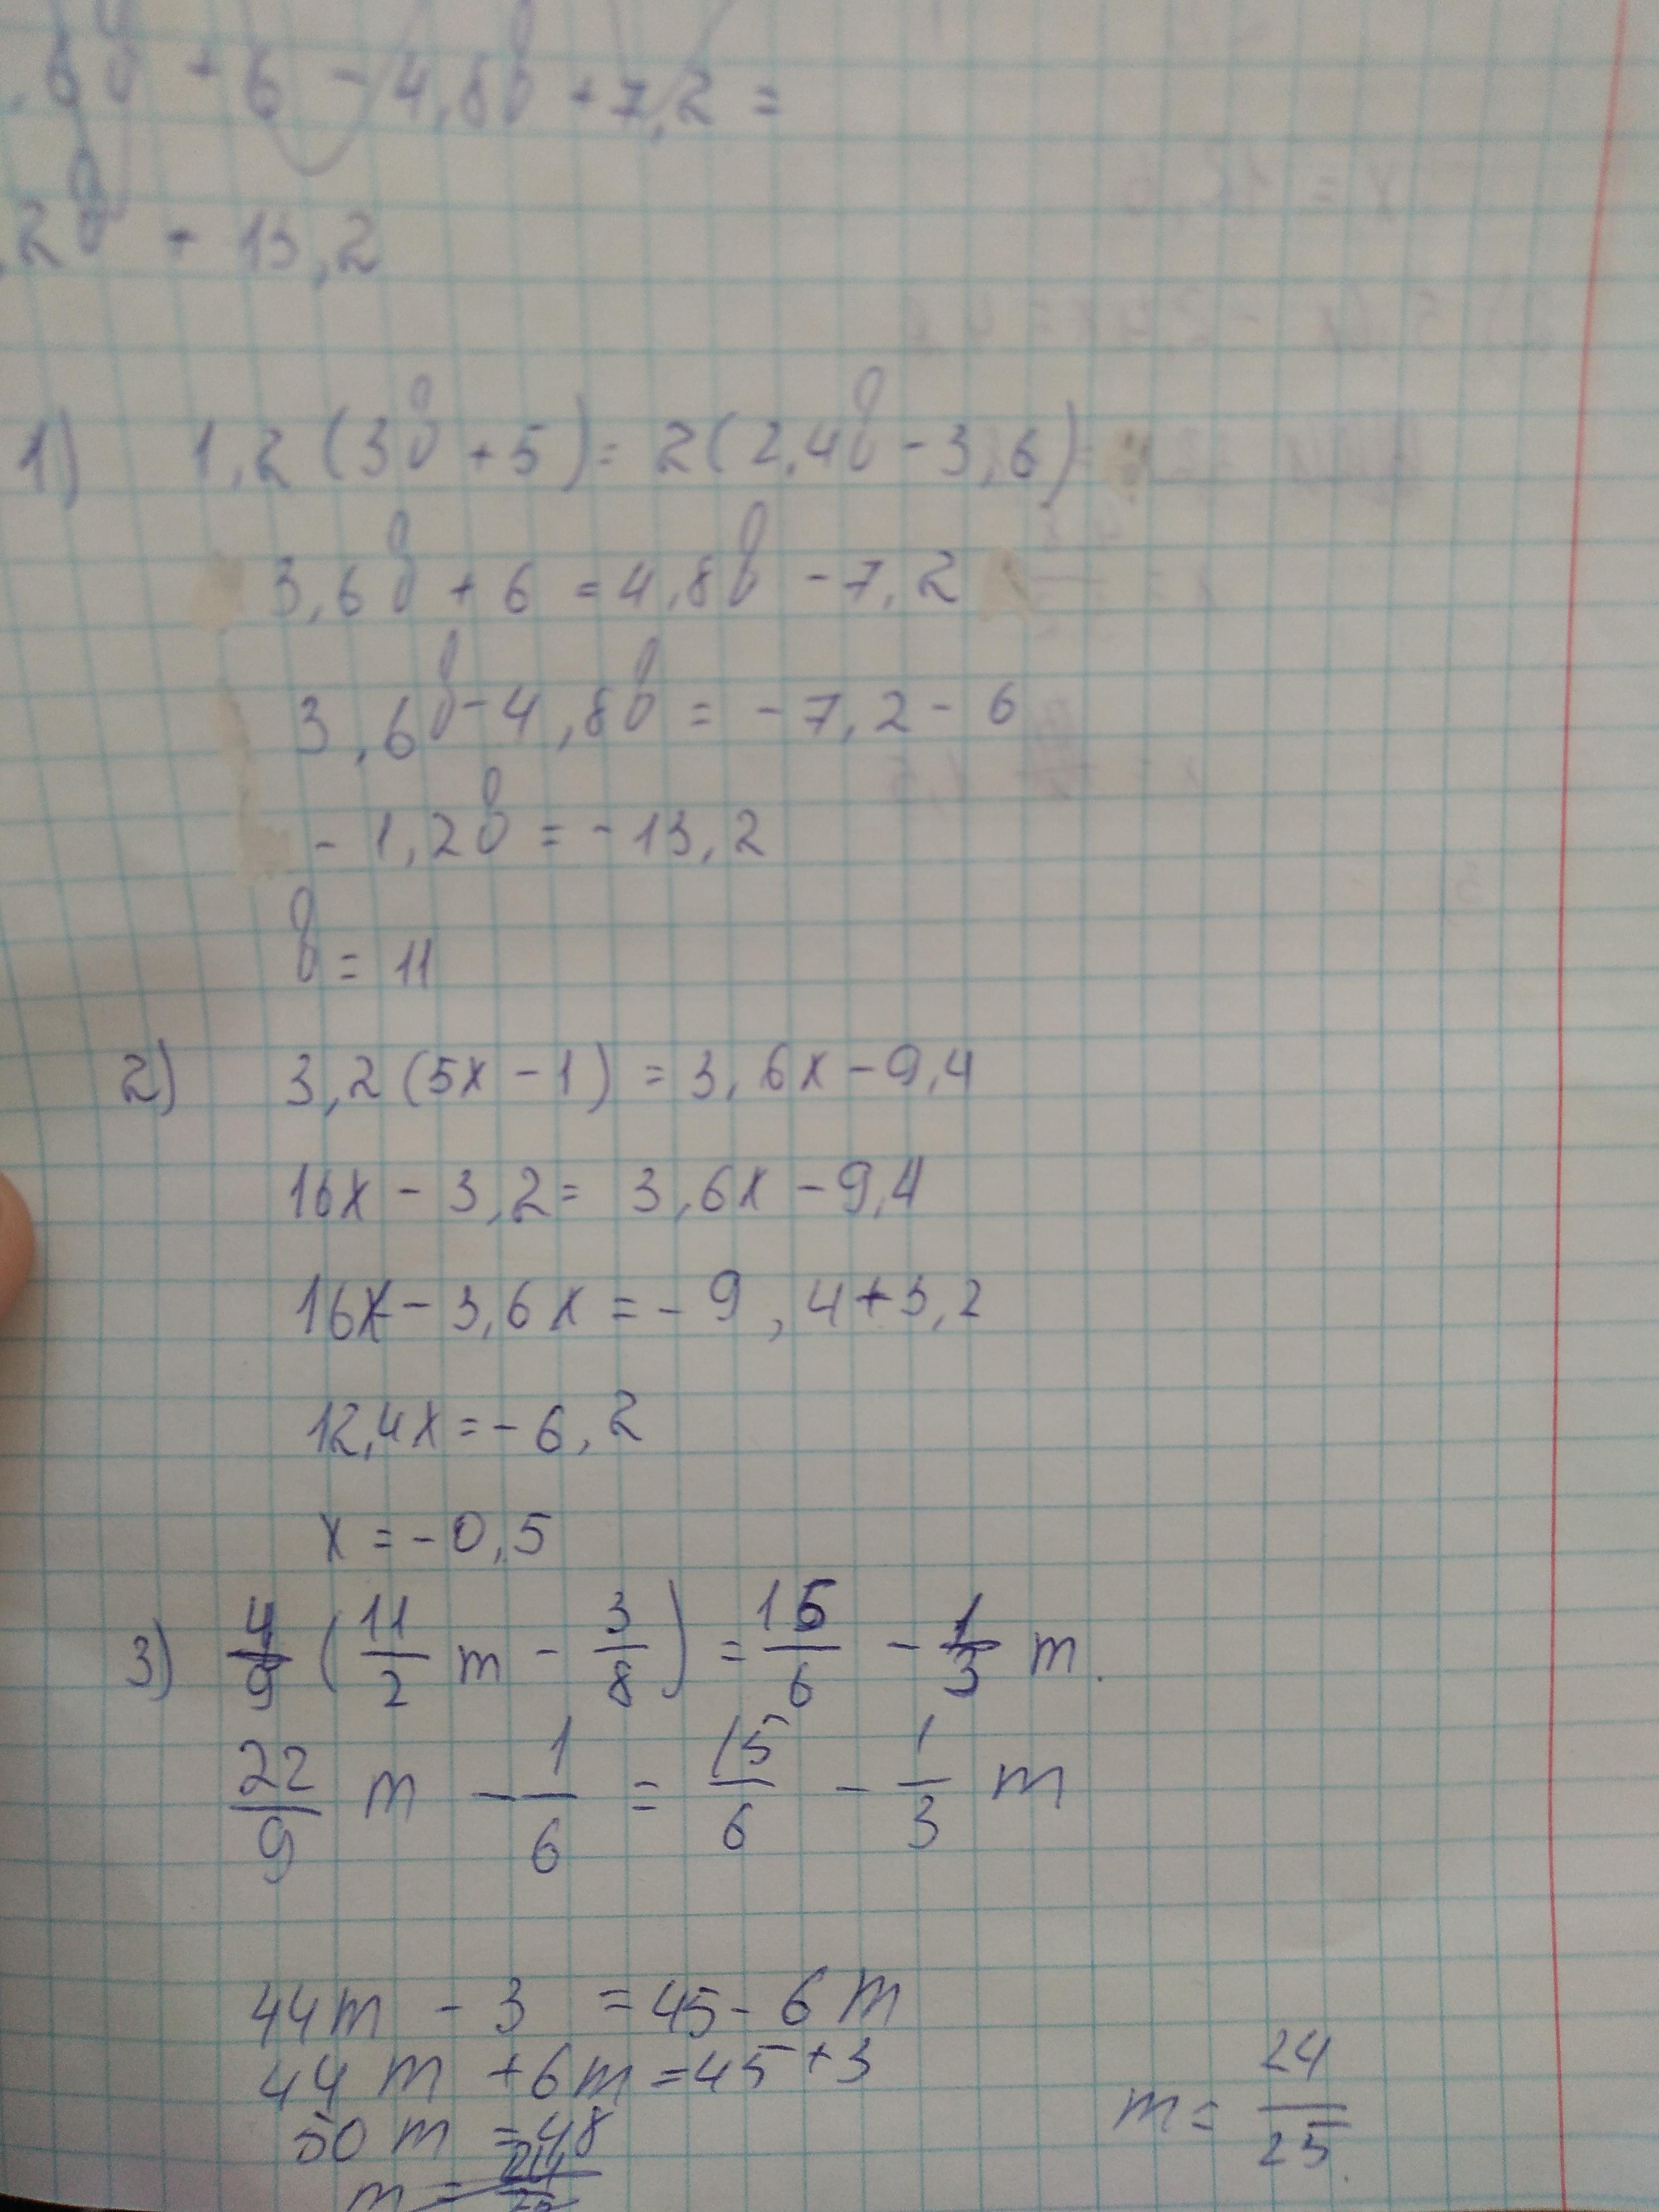 ,6b + 6 - 4,8b + 7,2 =
,2b + 13,2
1) 1,2(3b + 5) = 2(2,4b - 3,6)
3,6b + 6 = 4,8b - 7,2
3,6b - 4,8b = -7,2 - 6
-1,2b = -13,2
b = 11
2) 3,2(5x - 1) = 3,6x - 9,4
16x - 3,2 = 3,6x - 9,4
16x - 3,6x = -9,4 + 3,2
12,4x = -6,2
x = -0,5
3) 4/9 (11/2 m - 3/8) = 15/6 - 1/3 m.
22/9 m - 1/6 = 15/6 - 1/3 m
44m - 3 = 45 - 6m
44m + 6m = 45 + 3
50m = 48
m = 24/25.